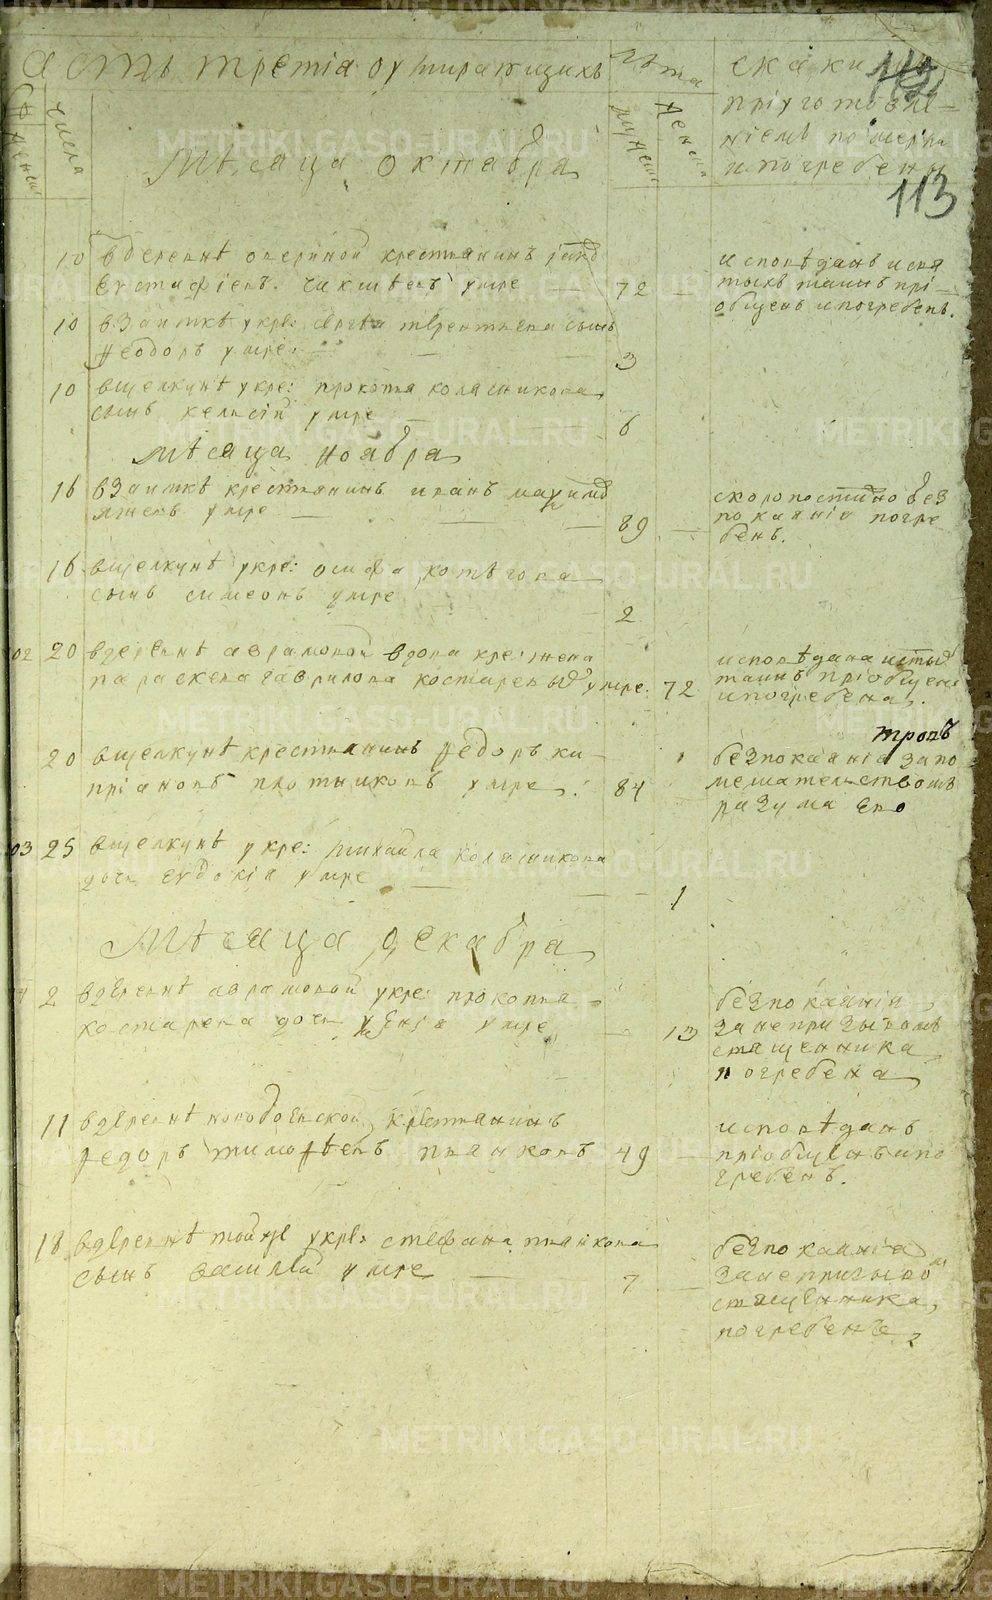 асть третіа оумирающихъ
лѣта
скаким
пріуготовле-
ніемъ померли
и погребены
числа
мужеск
женск
112
113
Мѣсяца октабра
10 вдеревнѣ
крестьянинъ
Евстафіевъ умре — 72
исповѣданъ исвя
тыхъ таинъ прі-
общенъ ипогребенъ.
10 взаимкѣ укре: терентиева сынъ
Феодоръ умре — 3
10 вщелкунѣ укре: прокопя колясникова
сынъ умре — 6
Мѣсяца ноабра
16 взаимкѣ крестянинъ иванъ
умре — 89
скоропостижно без
покаянія погре
бенъ.
16 вщелкунѣ укре: осифа котѣгова
сынъ симеонъ умре 2
02 20 вдеревнѣ аврамовой вдова кре: жена
параскева гаврилова костаревыхъ умре: 72
исповѣдана истых
таинъ пріобщена
ипогребена.
20 вщелкунѣ крестианинъ федоръ ки-
пріановъ плотниковъ умре: 84
безпокаянія запо
мешателствомъ
разума его
03 25 вщелкунѣ укре: михайла колясникова
дочь евдокія умре — 1
Мѣсяца декабра
2 вдеревнѣ аврамовой укре: прокопья
костарева дочь умре 13
безпокаянія
занепризывомъ
священника
погребена
11 вдеревнѣ крестянинъ
федоръ тимофѣевъ пьянковъ 49
исповѣданъ
пріобщенъ ипо
гребенъ.
18 вдеревнѣ тойже укре: стефана пьянкова
сынъ василей умре — 7
безпокаянія
занепризывом
священника,
погребенъ